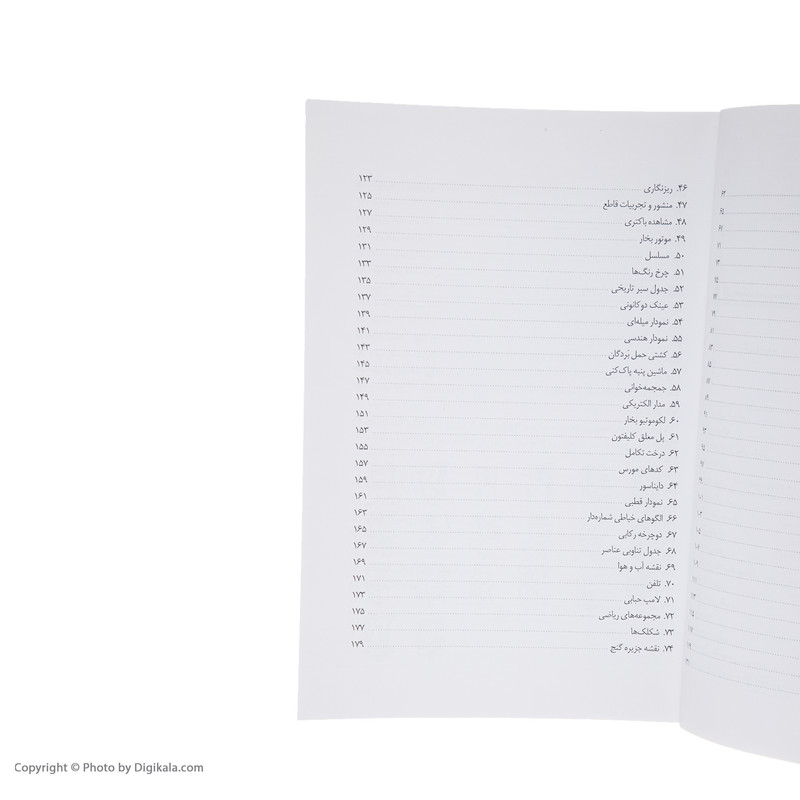 ۴۶. ریزنگاری ۱۲۳
۴۷. منشور و تجربیات قاطع ۱۲۵
۴۸. مشاهده باکتری ۱۲۷
۴۹. موتور بخار ۱۲۹
۵۰. مسلسل ۱۳۱
۵۱. چرخ رنگ‌ها ۱۳۳
۵۲. جدول سیر تاریخی ۱۳۵
۵۳. عینک دوکانونی ۱۳۷
۵۴. نمودار میله‌ای ۱۳۹
۵۵. نمودار هندسی ۱۴۱
۵۶. کشتی حمل بَردگان ۱۴۳
۵۷. ماشین پنبه پاک‌کنی ۱۴۵
۵۸. جمجمه‌خوانی ۱۴۷
۵۹. مدار الکتریکی ۱۴۹
۶۰. لکوموتیو بخار ۱۵۱
۶۱. پل معلق کلیفتون ۱۵۳
۶۲. درخت تکامل ۱۵۵
۶۳. کدهای مورس ۱۵۷
۶۴. دایناسور ۱۵۹
۶۵. نمودار قطبی ۱۶۱
۶۶. الگوهای خیاطی شماره‌دار ۱۶۳
۶۷. دوچرخه رکابی ۱۶۵
۶۸. جدول تناوبی عناصر ۱۶۷
۶۹. نقشه آب و هوا ۱۶۹
۷۰. تلفن ۱۷۱
۷۱. لامپ حبابی ۱۷۳
۷۲. مجموعه‌های ریاضی ۱۷۵
۷۳. شکلک‌ها ۱۷۷
۷۴. نقشه جزیره گنج ۱۷۹
Copyright © Photo by Digikala.com